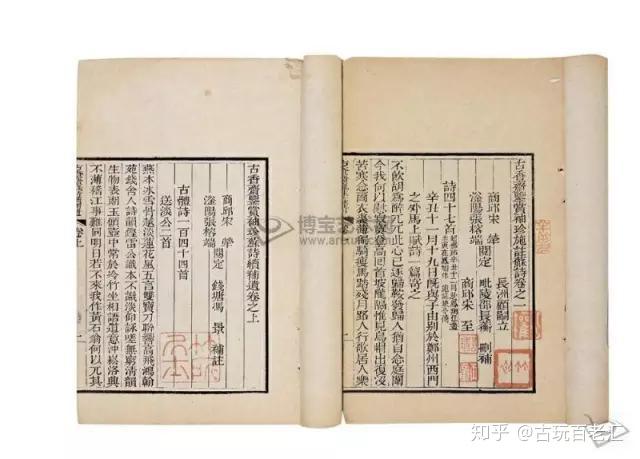 古香齋鑒賞袖珍施註蘇詩卷之一
長洲顧嗣立
商邱宋 犖
閱定 毗陵邵長蘅 刪補
滏陽張榕端
商邱宋 至
詩四十七首
辛丑十一月十九日既與子由別於鄭州西門
之外馬上賦詩一篇寄之
不飲胡爲醉兀兀此心已逐歸鞍發歸人猶自念庭闈
今我何以慰寂寞登高回首坡隴隔惟見烏帽出復沒
苦寒念爾衣裘薄獨騎瘦馬踏殘月路人行歌居人樂
古香齋鑒賞袖珍蘇詩續補遺卷之上
商邱宋 犖
閱定 錢塘馮 景 補註
滏陽張榕端
古體詩一百四十四首
送淡公二首
燕本冰雪骨越淡蓮花風五言雙寶刀聯響高飛鴻翰
苑錢舍人詩韻鏗雷公識本未識淡仰詠嗟無窮清韻
生物表朗玉傾壺中常於冷竹坐相語道意沖崧洛興
不薄稽江事難同明日若不來我作黃石翁何以兀其
博宝
知乎 @古玩百老汇